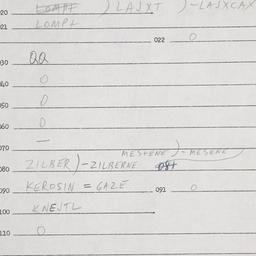 020 LOMPF ) LAJXT ) -LAJXCAX
021 LOMPL
022 O
030 QQ
040 O
050 O
060 O
070 —
MESTENE ) - MESENE
080 ZILBER ) - ZILBERNE 081
090 KEROSIN = GAZE 091 O
100 KNEJTL
110 O